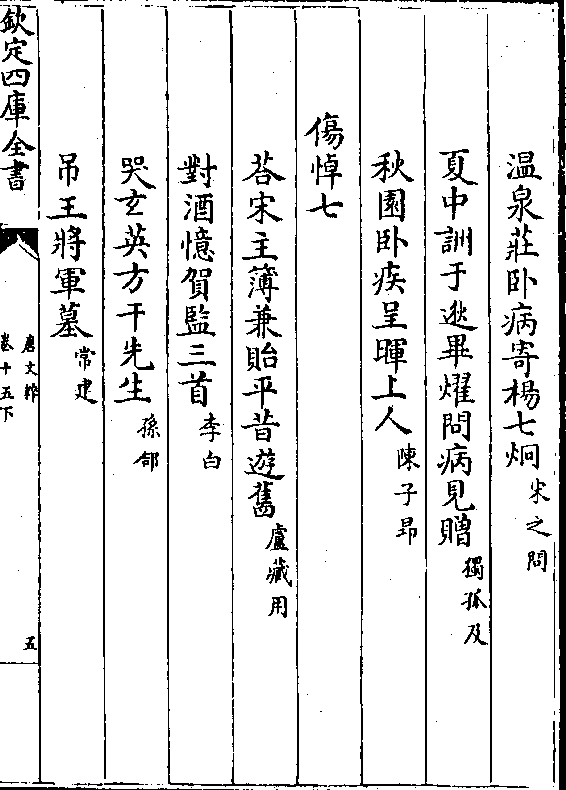 温泉莊卧病寄楊七炯 宋之問
夏中訓于逖畢燿問病見贈 獨孤及
秋園卧疾呈暉上人 陳子昻
傷悼七
荅宋主簿兼貽平昔遊舊 盧藏用
對酒憶賀監三首 李白
哭玄英方干先生 孫郃
吊王將軍墓 常建
欽定四庫全書
唐文粹
卷十五下
五